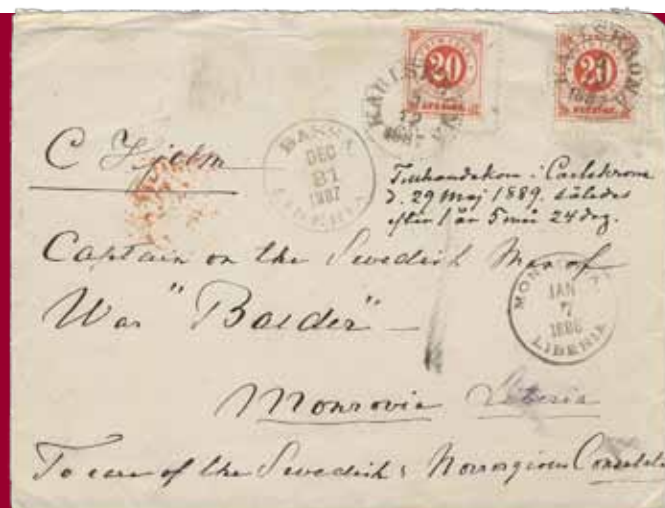 20
20
KARLSKRONA
BASSA
DEC
31
1887
LIBERIA
C Hjelm
Tillhandakom i Carlskrona
d. 29 Maj 1889. således
efter 1 år 5 mån 24 dag.
Captain on the Swedish Man of
War "Balder" —
MONROVIA
JAN
7
1888
LIBERIA
Monrovia Liberia
To care of the Swedish & Norvegious Consulate